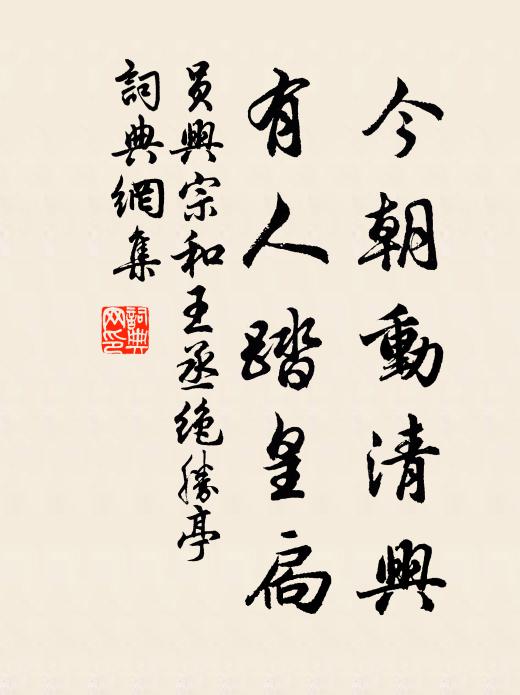 今朝動清興
有人踏皇扃
員興宗和王丞絶勝亭
詞典網集
詞典
网印